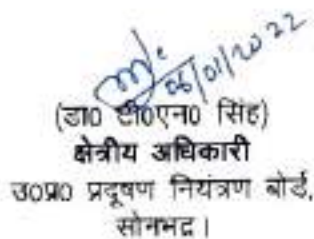 06/01/2022
(डा0 टी0एन0 सिंह)
क्षेत्रीय अधिकारी
उ0प्र0 प्रदूषण नियंत्रण बोर्ड,
सोनभद्र।